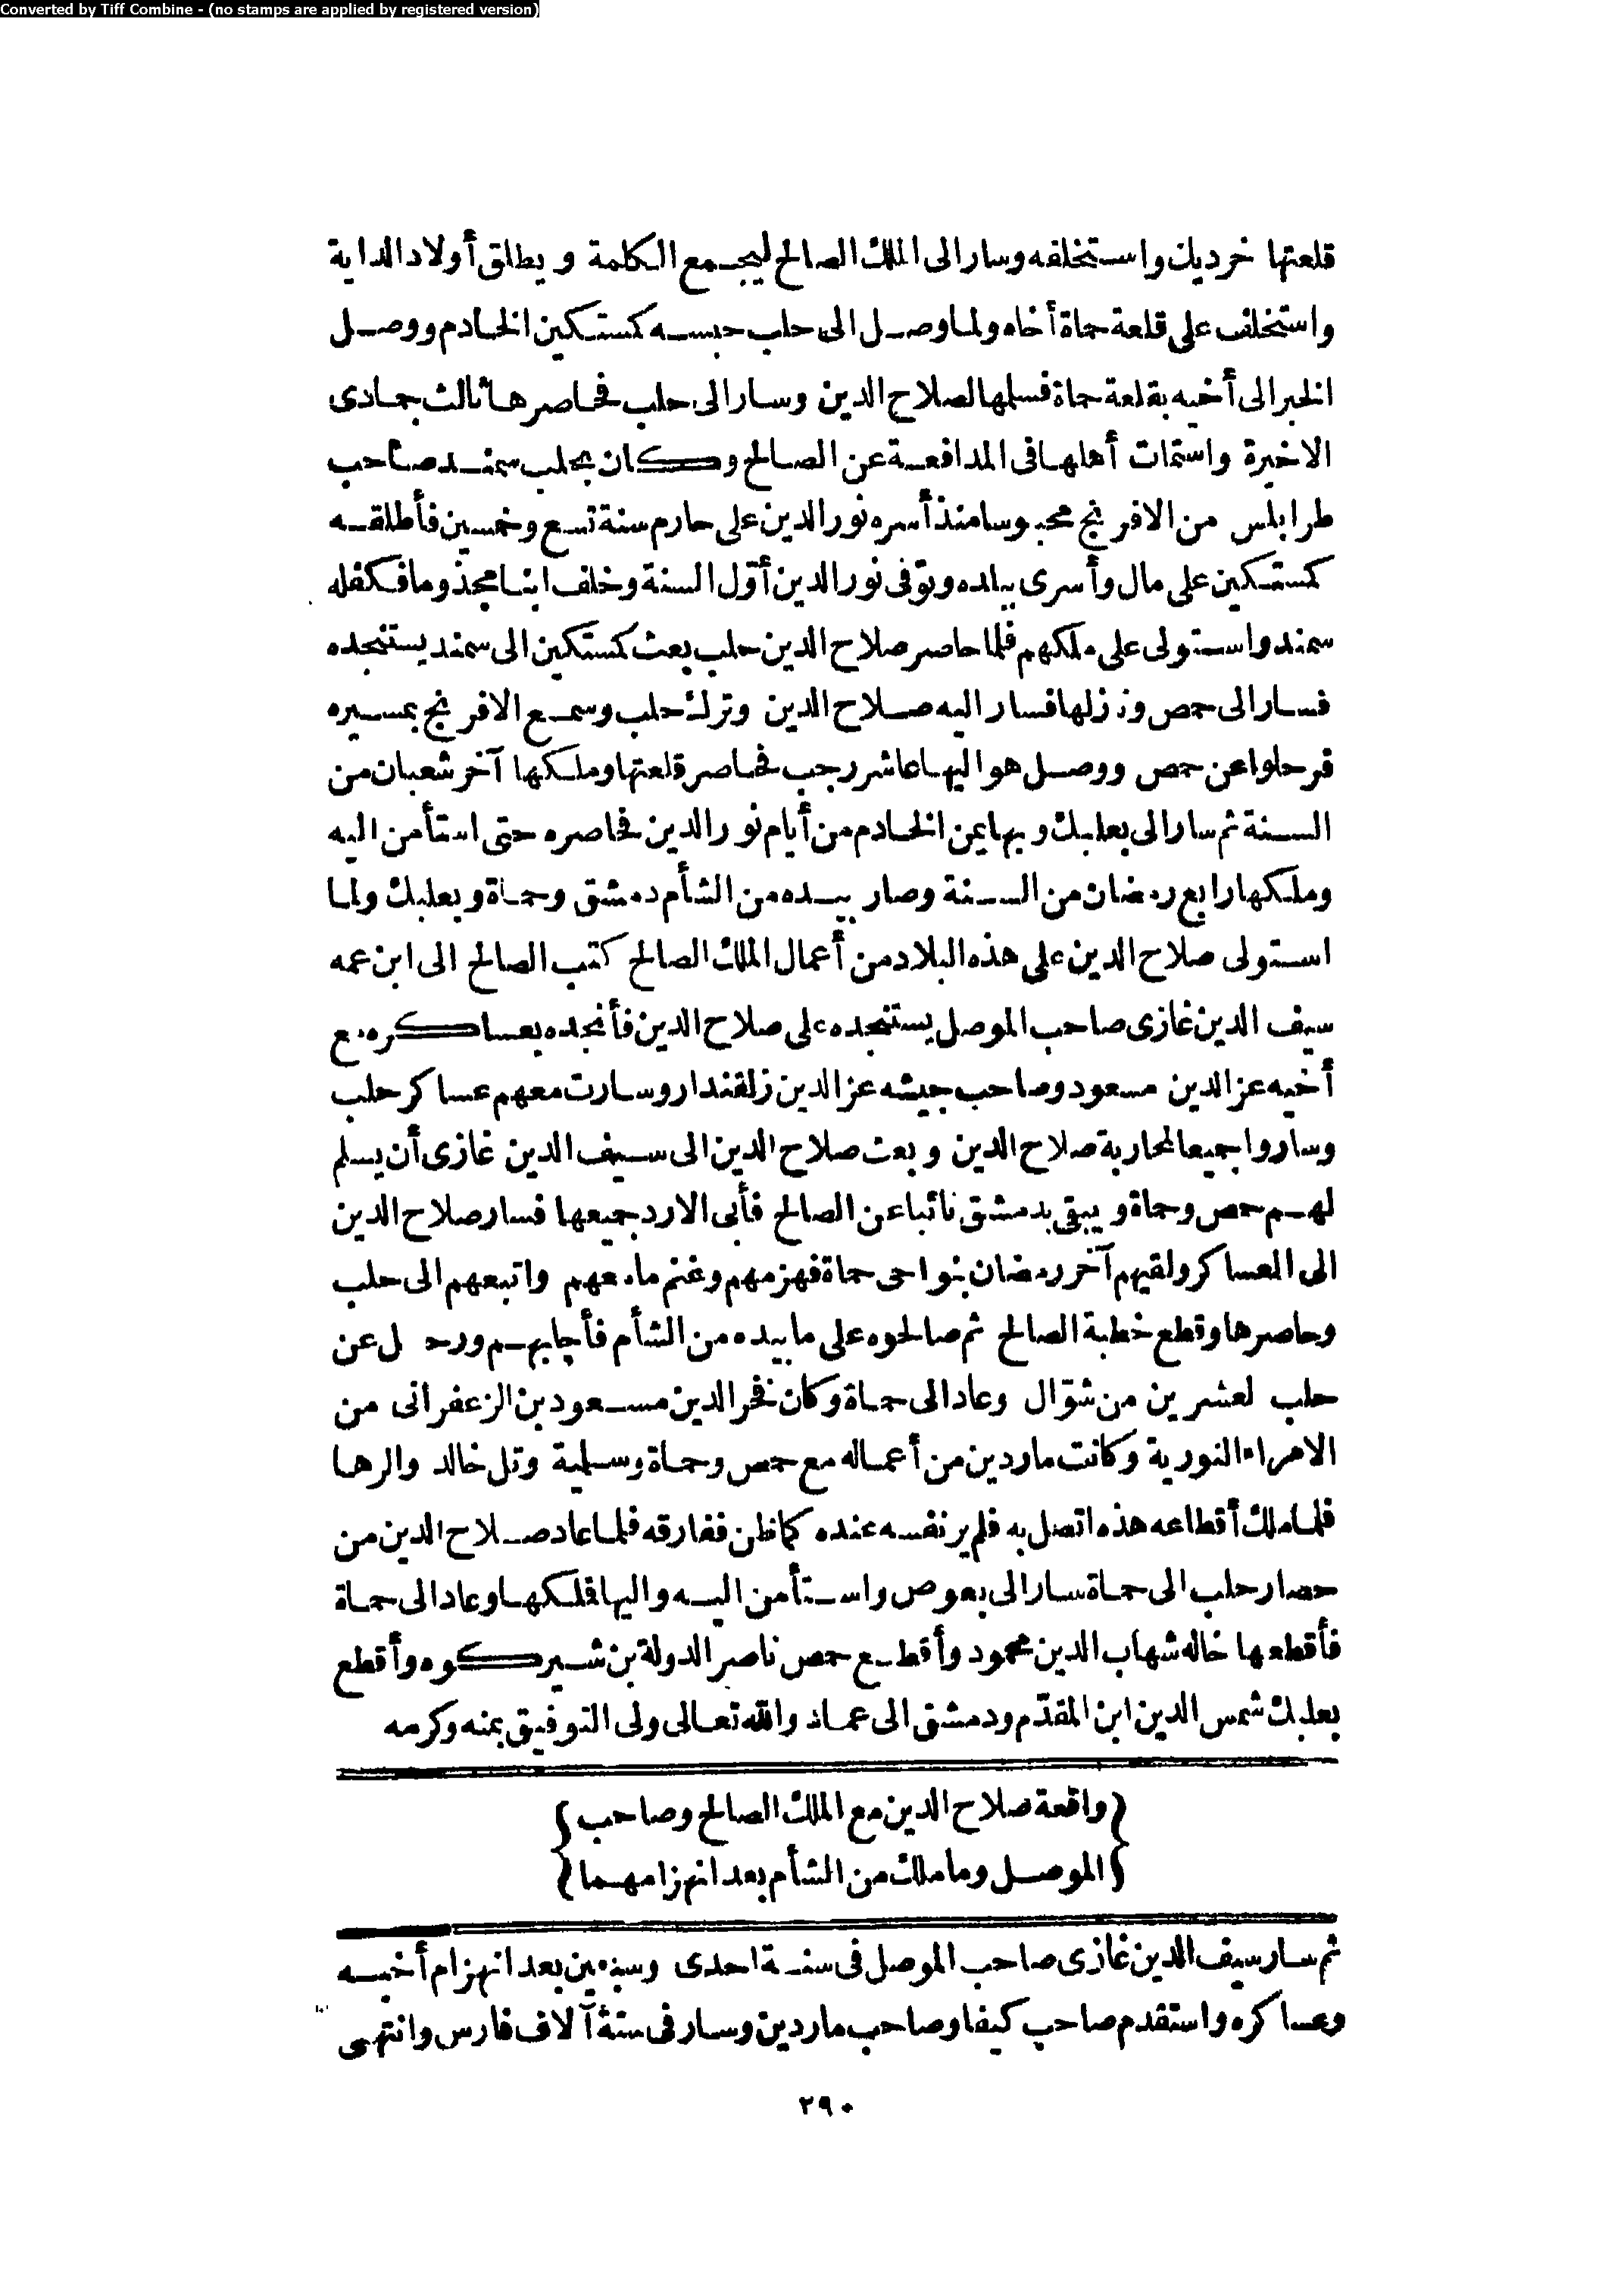 Converted by Tiff Combine - (no stamps are applied by registered version)
قلعتها خرديك واستخلفه وسار الى الملك الصالح ليجمع الكلمة ويطلق أولاد الداية
واستخلف على قلعة حماة أخاه ولما وصل الى حلب حبسه كمستكين الخادم ووصل
الخبر الى أخيه بقلعة حماة فسلمها لصلاح الدين وسار الى حلب فحاصرها ثالث جمادى
الاخيرة واستمات أهلها فى المدافعة عن الصالح وكان بحلب سمند صاحب
طرابلس من الافرنج محبوسا منذ أسره نور الدين على حارم سنة تسع وخمسين فأطلقه
كمستكين على مال وأسرى ببلده وتوفى نور الدين أوّل السنة وخلف ابنا مجذوما فكفله
سمند واستولى على ملكهم فلما حاصر صلاح الدين حلب بعث كمستكين الى سمند يستنجده
فسار الى حمص ونزلها فسار اليه صلاح الدين وترك حلب وسمع الافرنج بمسيره
فرحلوا عن حمص ووصل هو اليها عاشر رجب فحاصر قلعتها وملكها آخر شعبان من
السنة ثم سار الى بعلبك وبها يمن الخادم من أيام نور الدين فحاصره حتى استأمن اليه
وملكها رابع رمضان من السنة وصار بيده من الشأم دمشق وحماة وبعلبك ولما
استولى صلاح الدين على هذه البلاد من أعمال الملك الصالح كتب الصالح الى ابن عمه
سيف الدين غازى صاحب الموصل يستنجده على صلاح الدين فأنجده بعساكره مع
أخيه عز الدين مسعود وصاحب جيشه عز الدين زلقندار وسارت معهم عساكر حلب
وساروا جميعا لمحاربة صلاح الدين وبعث صلاح الدين الى سيف الدين غازى أن يسلم
لهم حمص وحماة ويبقى بدمشق نائبا عن الصالح فأبى الا رد جميعها فسار صلاح الدين
الى العساكر ولقيهم آخر رمضان بنواحى حماة فهزمهم وغنم ما معهم واتبعهم الى حلب
وحاصرها وقطع خطبة الصالح ثم صالحوه على ما بيده من الشأم فأجابهم ورحل عن
حلب لعشرين من شوّال وعاد الى حماة وكان فخر الدين مسعود بن الزعفرانى من
الامراء النورية وكانت ماردين من أعماله مع حمص وحماة وسلمية وتل خالد والرها
فلما ملك أقطاعه هذه اتصل به فلم ير نفسه عنده كما ظن ففارقه فلما عاد صلاح الدين من
حصار حلب الى حماة سار الى بعوص واستأمن اليه واليها فملكها وعاد الى حماة
فأقطعها خاله شهاب الدين محمود وأقطع حمص ناصر الدولة بن شيركوه وأقطع
بعلبك شمس الدين ابن المقدّم ودمشق الى عماد والله تعالى ولى التوفيق بمنه وكرمه
{واقعة صلاح الدين مع الملك الصالح وصاحب}
{الموصل وما ملك من الشأم بعد انهزامهما}
ثم سار سيف الدين غازى صاحب الموصل فى سنة احدى وسبعين بعد انهزام أخيه
وعساكره واستقدم صاحب كيفا وصاحب ماردين وسار فى ستة آلاف فارس وانتهى
٢٩٠